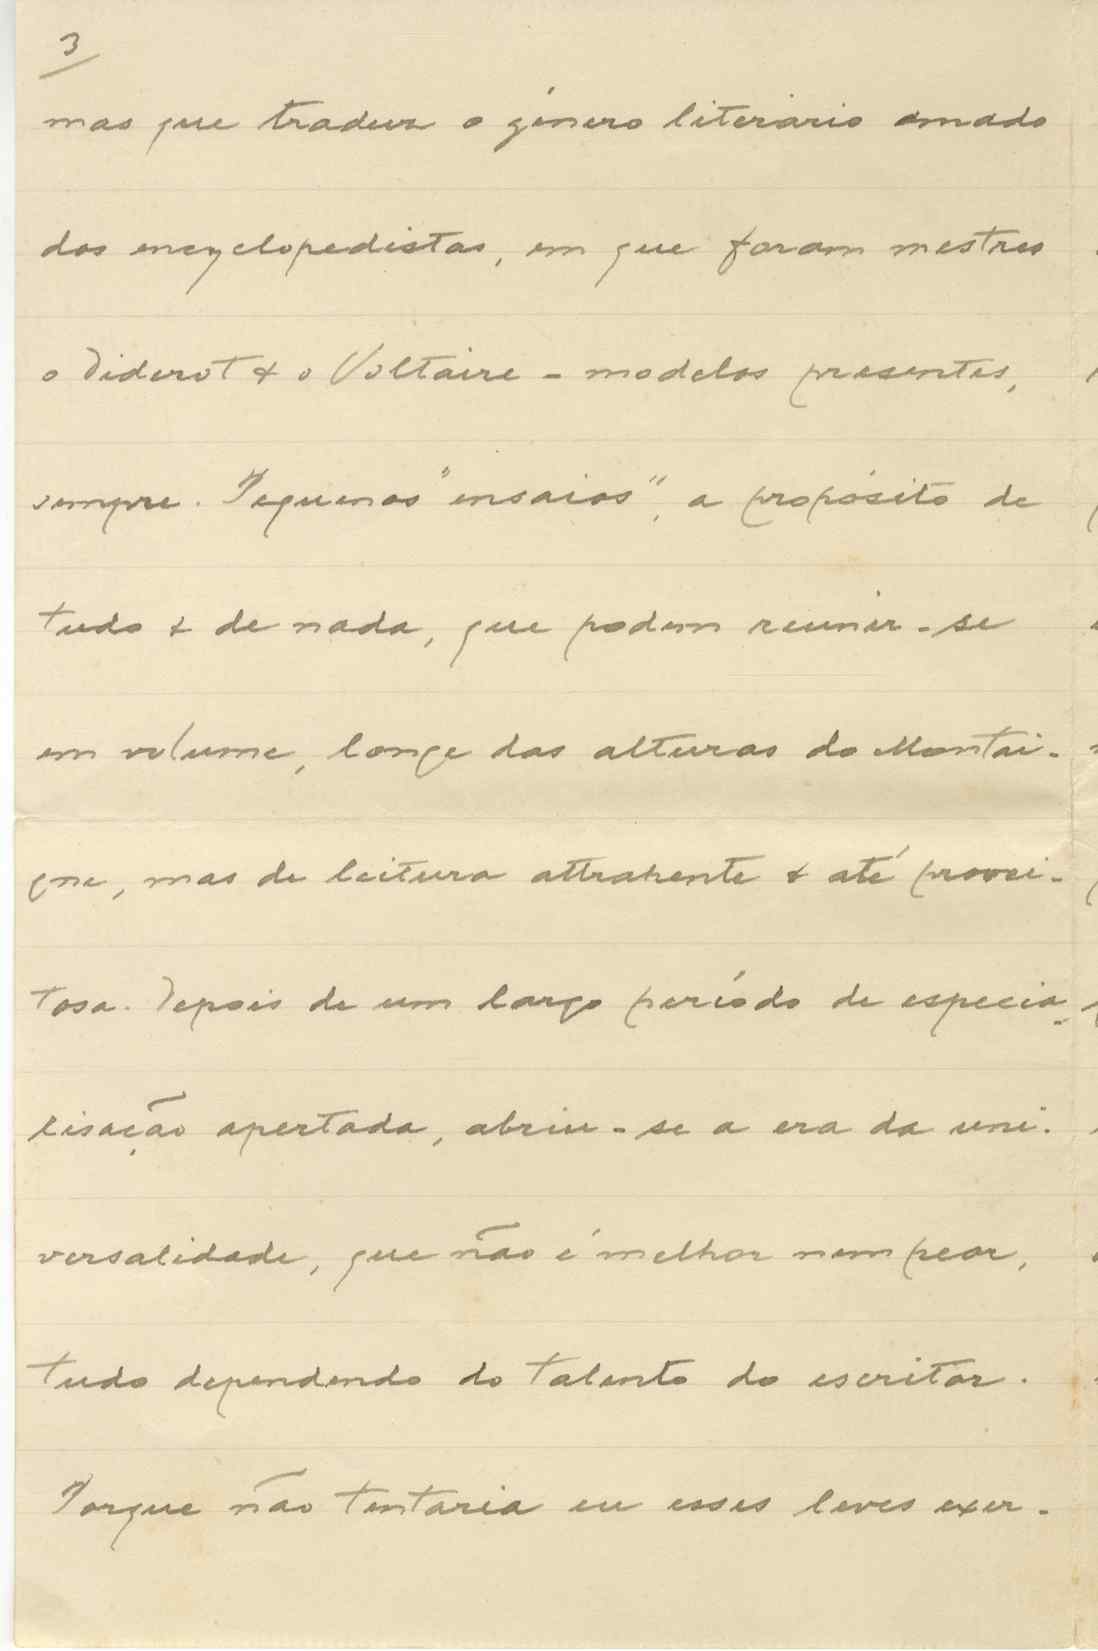 3
mas que traduz o género literário amado
dos encyclopedistas, em que foram mestres
o Diderot & o Voltaire - modelos presentes,
sempre. Pequenos "ensaios", a propósito de
tudo & de nada, que podem reunir-se
em volume, longe das alturas do Montai-
gne, mas de leitura attrahente & até provei-
tosa. Depois de um largo período de especia-
lisação apertada, abriu-se a era da uni-
versalidade, que não é melhor nem peor,
tudo dependendo do talento do escritor.
Porque não tentaria eu esses leves exer-